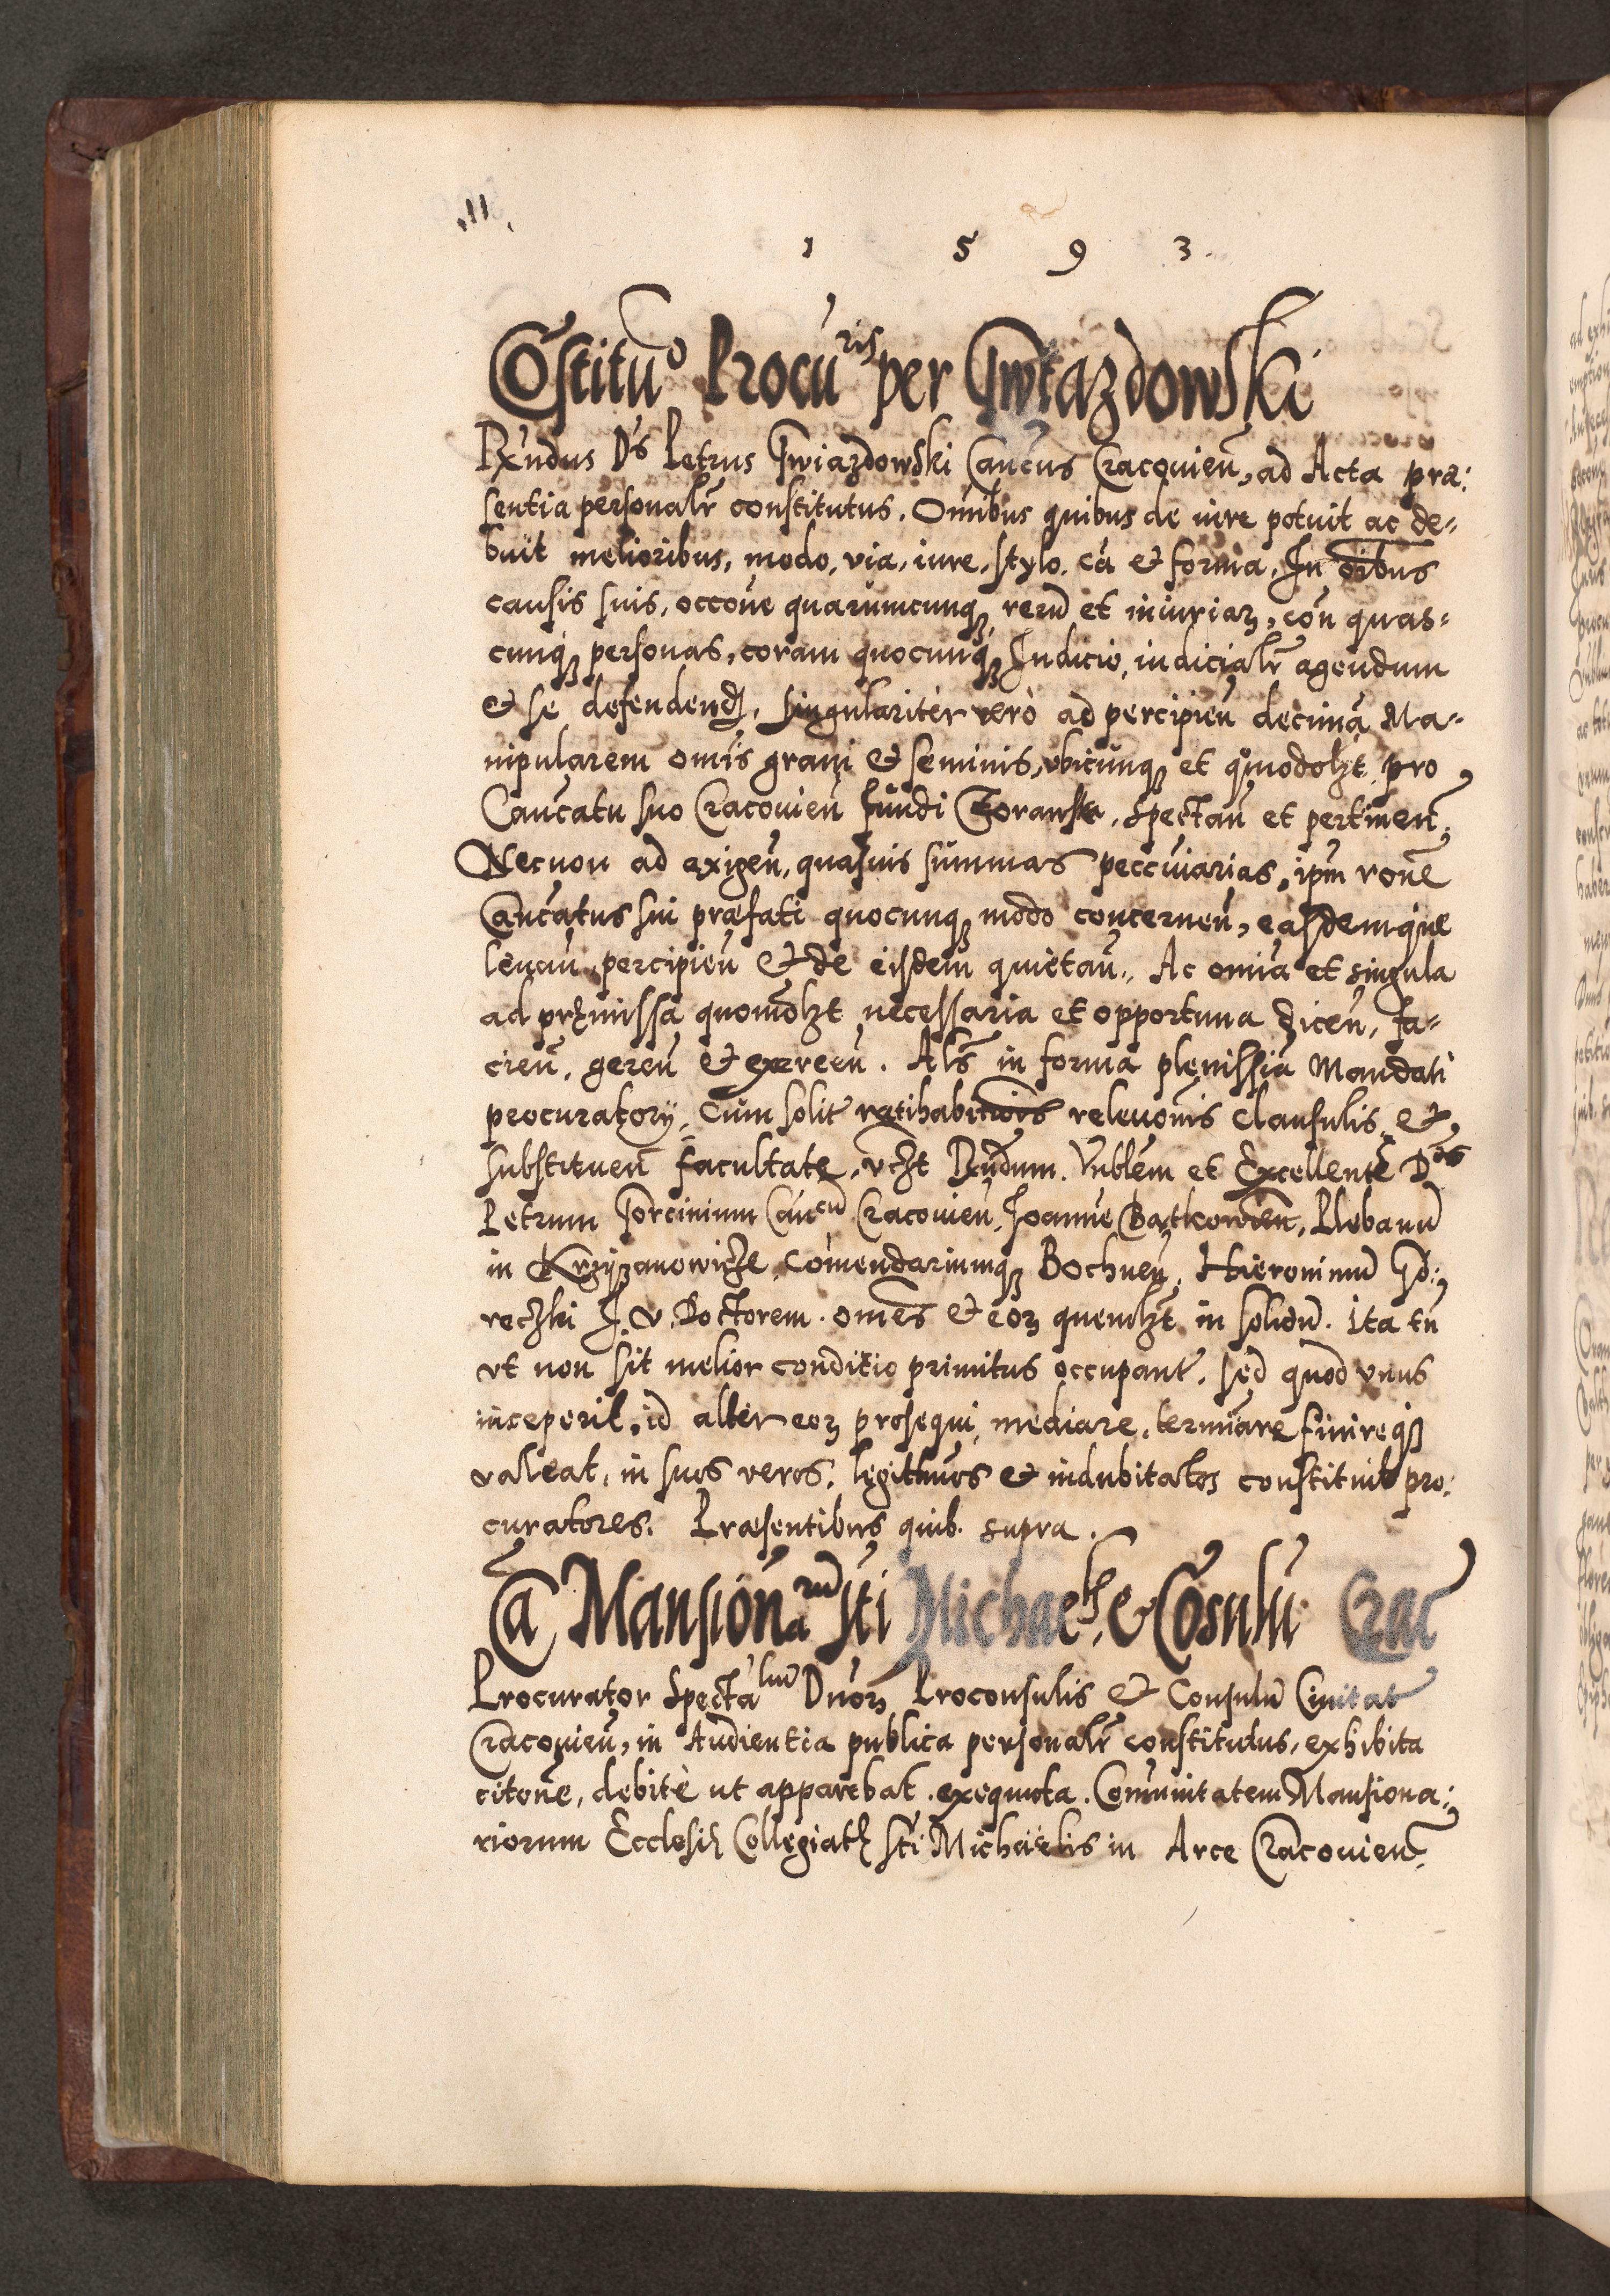 1 5 9 3.
Cōstitūo Procuris per Gwiazdowski
Rx̄ndus Ds Petrus Gwiazdowski Canc̄us Cracovien̄, ad Acta præ:
sentia personalr̄ constitutus. Om̄ibus quibus de iure potuit ac de-
buit melioribus, modo, via, iure, stylo, cā et forma. In oībus
causis suis, occōne quarumcunqꝫ rerū et iniuriaꝝ, con̄ quas-
cunqꝫ personas, coram quocunqꝫ Iudicio, iudicialr̄ agendum
et se defendendꝫ. Singulariter vero ad percipien̄ decimā Ma-
nipularem om̄is grani et seminis, ubicunqꝫ et quōdolꝫt pro
Canc̄atu suo Cracovien̄ fundi, spectan̄ et pertinen̄.
Necnon ad exigen̄, quasvis summas peccuiarias, ipm̄ rōne
Canc̄atus sui præfati quocunqꝫ modo concernen̄, easdemque
levan̄, percipien̄ et de eisdem quietan̄. Ac om̄ia et singula
ad pręmissa quomōlꝫt necessaria et opportuna dicen̄, fa-
cien̄, geren̄ et exercen̄. Als̄ in forma plenissīa Mandati
procuratorij, cum solit ratihabitiōis relevōnis clausulis, et
substituen̄ facultate, vꝫt Rn̄dum. Vn̄blem et Excellentē Dos
Petrum Gorcinium Canc̄u Cracovien̄, Joannē Bątkowien̄, Plebanū
in Krzyżanowicze, Com̄endariumqꝫ Bochnen̄, Hieronimū Gd:
reczki J. V. Doctorem. om̄es et eoꝝ quemlꝫt in solidū. Ita tn̄
ut non sit melior conditio primitus occupant. sed quod unus
inceperit, id alter eoꝝ prosequi, mediare, termīare finireqꝫ
valeat, in suos veros, legitimos et indubitatos constituit pro:
curatores. Præsentibus quib. supra.
Cā Mansionarū Sti Michaelis, et Cōsulū Crac
Procurator Spectaliū Dn̄oꝝ Proconsulis et Consulū Civitat
Cracovien̄, in Audientia publica personalr̄ constitutus, exhibita
citōne, debitè ut apparebat exequuta. Com̄unitatem Mansiona:
riorum Ecclesię Collegiatę Sti Michaelis in Arce Cracovien̄.